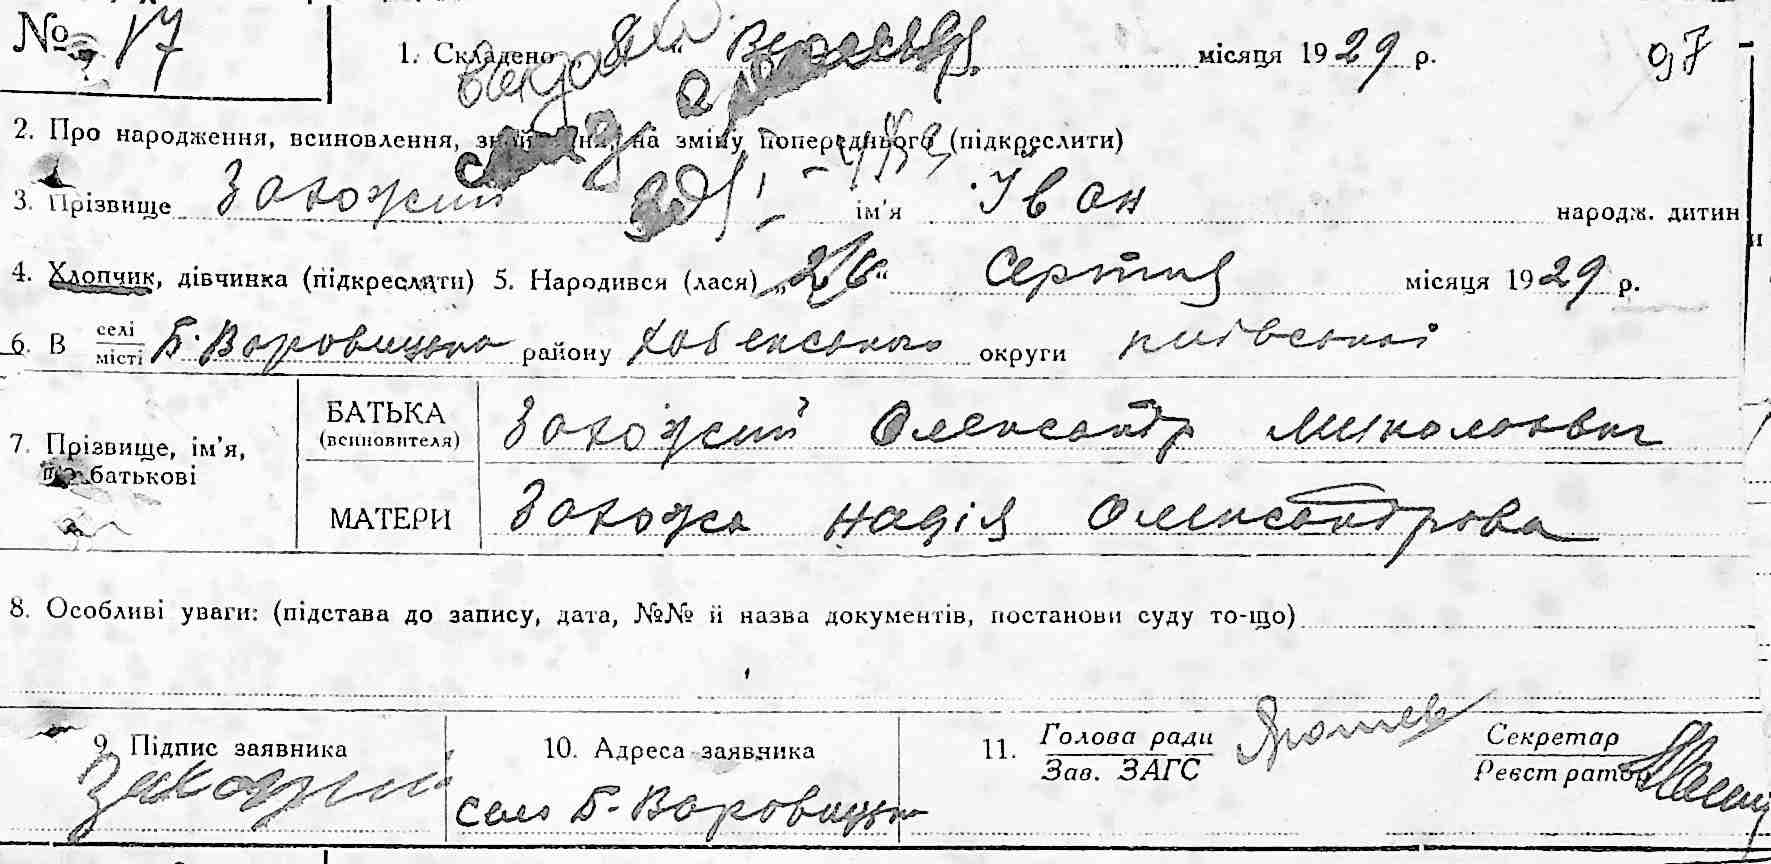 № 17
1. Складено Вересня місяця 1929 р. 97
2. Про народження, всиновлення, на зміну попереднього (підкреслити)
3. Прізвище Заходжий ім'я Іван народж. дитини
4. Хлопчик, дівчинка (підкреслити) 5. Народився (лася) „26" Серпня місяця 1929 р.
6. В селі місті Б. Воровицька району Хабенського округи Київської
7. Прізвище, ім'я, по батькові
БАТЬКА (всиновителя) Заходжий Олександр Миколаєвич
МАТЕРИ Заходжа Надія Олександрова
8. Особливі уваги: (підстава до запису, дата, №№ й назва документів, постанови суду то-що)
9. Підпис заявника 10. Адреса заявника 11. Голова ради Секретар
Зав. ЗАГС Реєстратор
Заходжий
село Б-Воровицька